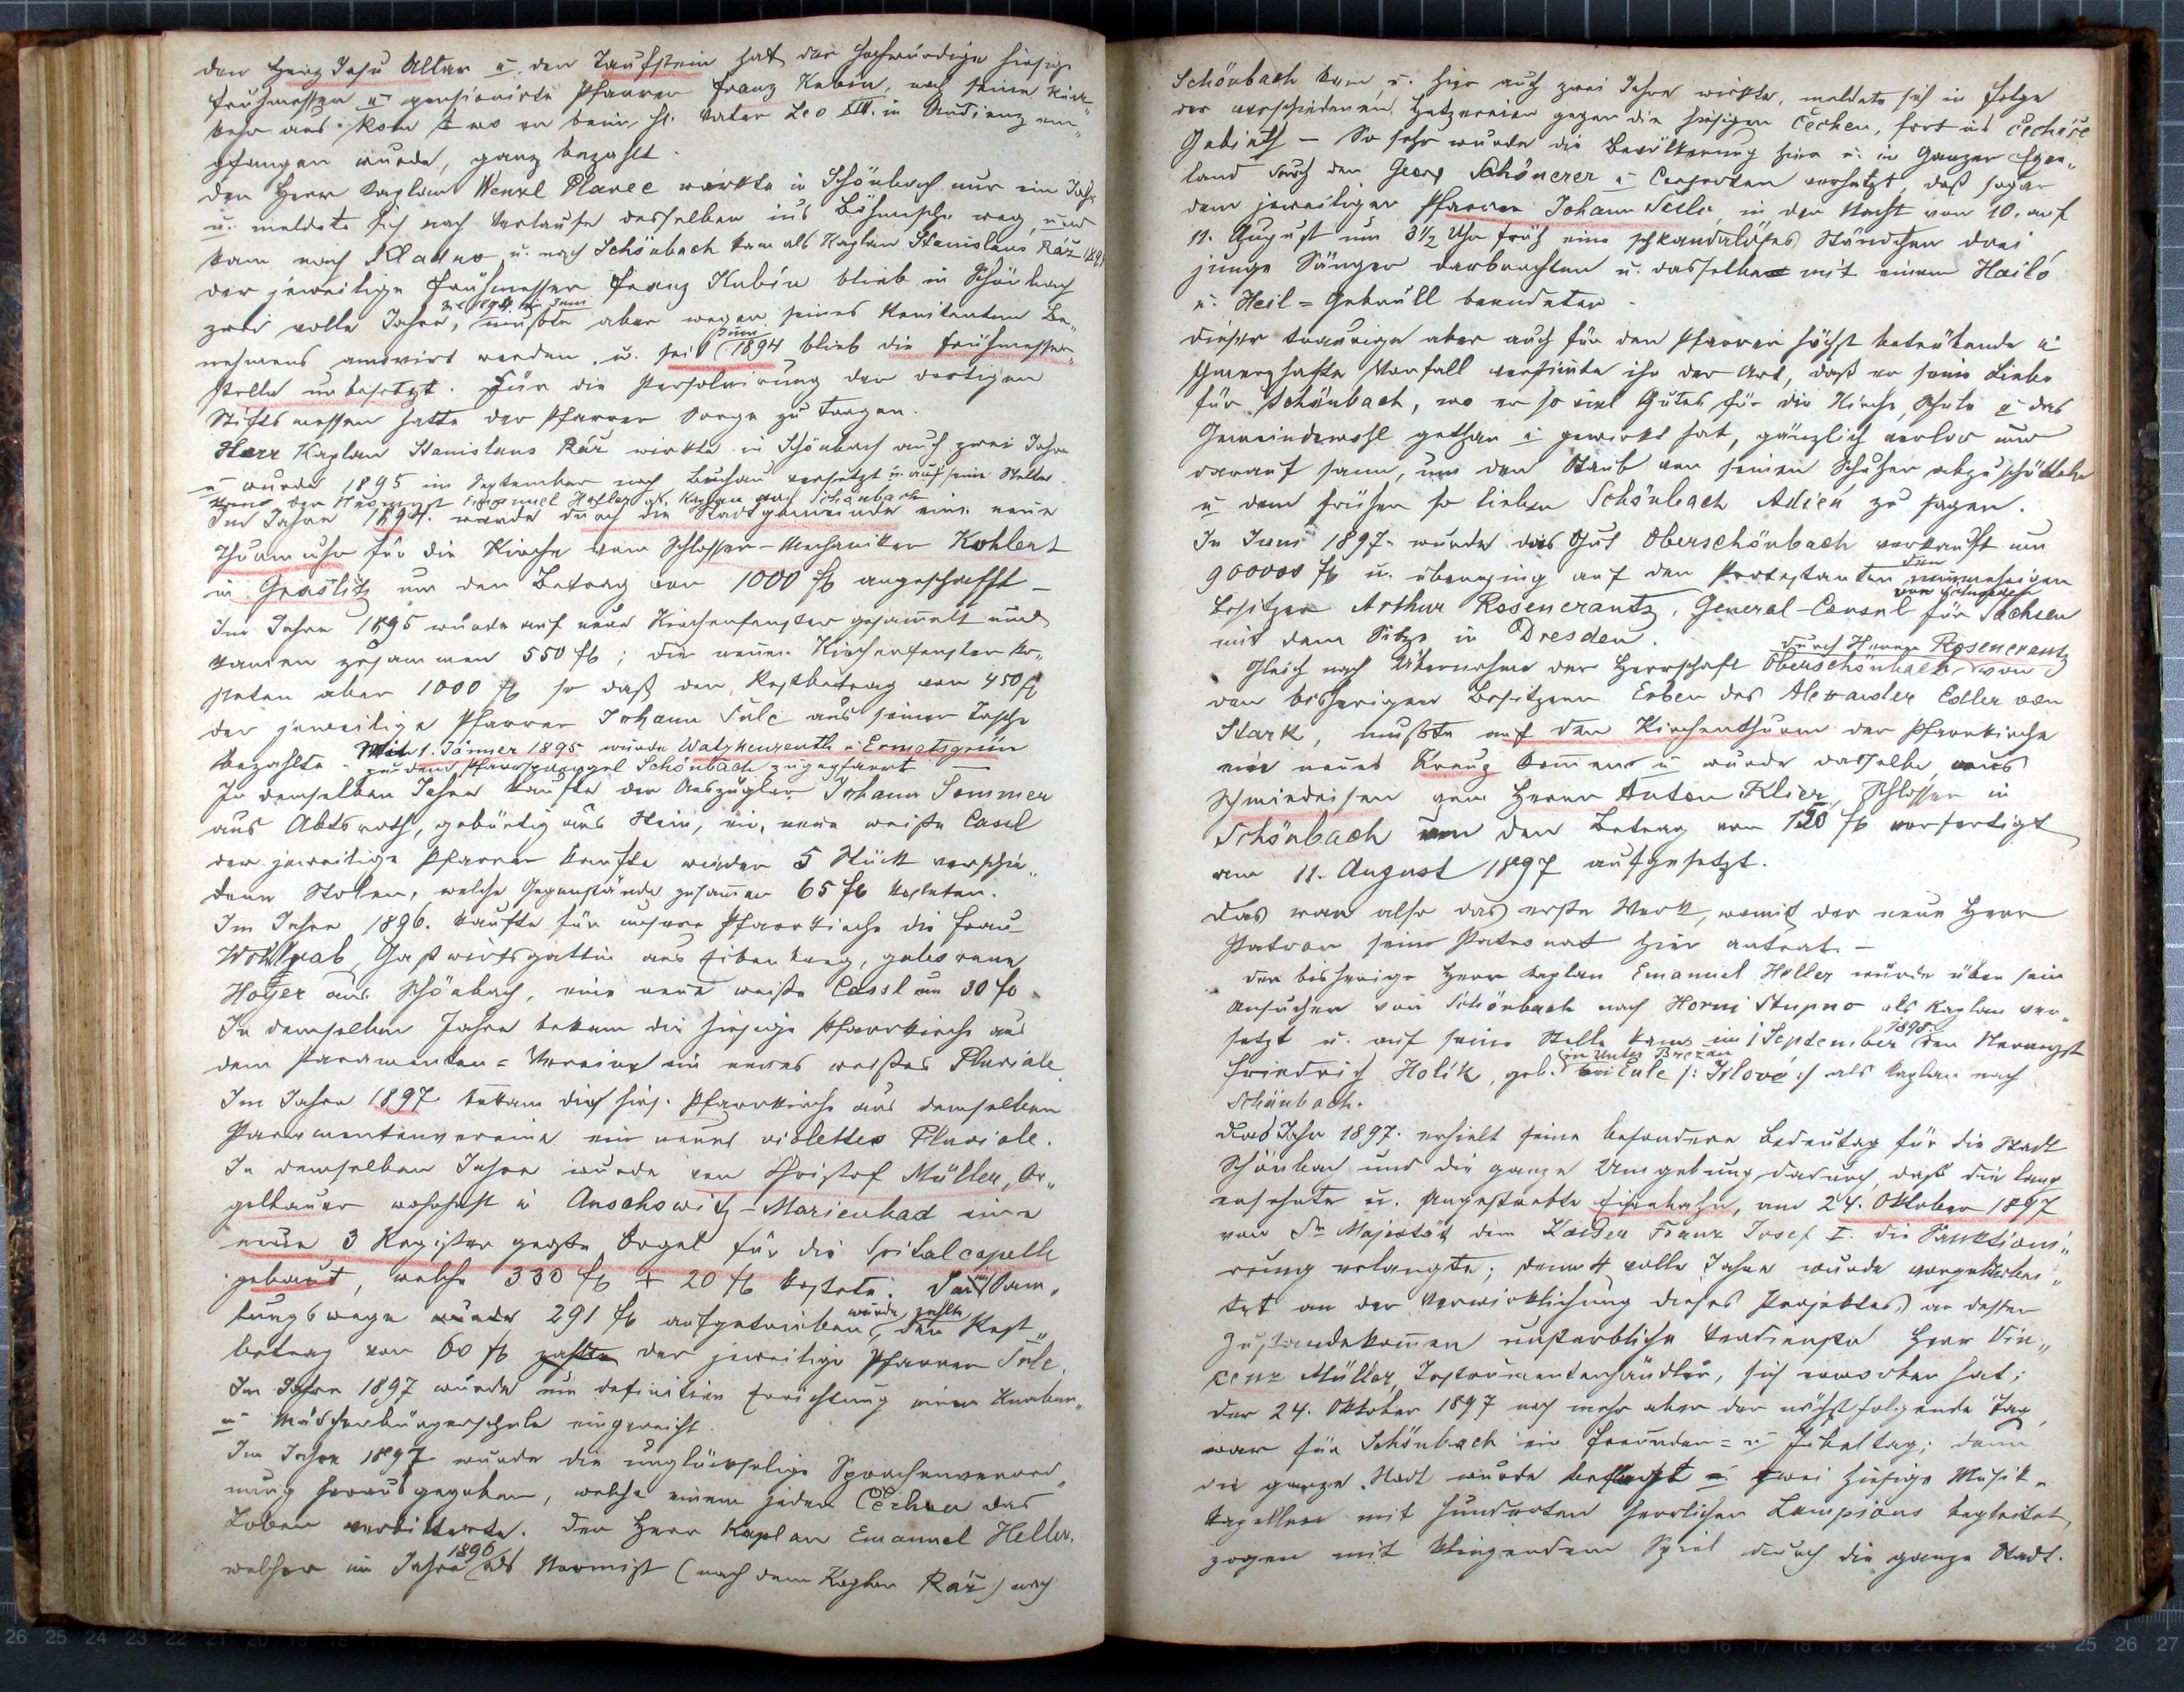 den Herz Jesu Altar u. den Taufstein hat der hochwürdige hiesige
Frühmesser u. pensionirte Pfarrer Franz Kubin, nach seiner Rück„
kehr aus Rom wo er beim hl. Vater Leo XIII. in Audienz em„
pfangen wurde, ganz bezahlt.
Der Herr Kaplan Wenzl Planec wirkte in Schönbach nur ein Jahr
u. meldete sich nach Verlaufe desselben ins Böhmische weg, und
kam nach Kladno u. nach Schönbach kam als Kaplan Stanislaus Ráž
der jeweilige Frühmesser Franz Kubin blieb in Schönbach
1894 im Juni
zwei volle Jahre, mußte aber wegen seines renitenten Be„
Juni
nehmens amovirt werden u. seit 1894 blieb die Frühmesser„
stelle unbesetzt. Für die Persolvirung der dortigen
Stiftsmessen hatte der Pfarrer Sorge zu tragen.
Herr Kaplan Stanislaus Ráž wirkte in Schönbach auch zwei Jahre
u. wurde 1895 im September nach Buchau versetzt u. auf seine Stelle
kam der Neomyst Emanuel Heller als Kaplan nach Schönbach
Im Jahre 1894. wurde durch die Stadtgemeinde eine neue
Thurmuhr für die Kirche vom Schlosser-Mechaniker Kohlert
in Graslitz um den Betrag von 1000 fl angeschafft –
Im Jahre 1895 wurde auf neue Kirchenfenster gesammelt und
kamen zusammen 550 fl; die neuen Kirchenfenster ko„
steten aber 1000 fl so daß den Restbetrag von 450 fl
der jeweilige Pfarrer Johann Šulc aus seiner Tasche
bezahlte. Mit 1. Jänner 1895 wurde Watzkenreuth u. Ermetsgrün
zu dem Pfarrsprengel Schönbach zugepfarrt –
In demselben Jahre kaufte der Auszügler Johann Sommer
aus Abtsroth, gebürtig aus Stein, ein neue weiße Casel
der jeweilige Pfarrer kaufte wieder 5 Stück verschie„
dene Stolen, welche Gegenstände zusammen 65 fl kosteten.
Im Jahre 1896. kaufte für unsere Pfarrkirche die Frau
Wohlrab, Gastwirtsgattin aus Eibenberg, geborene
Hoyer aus Schönbach, eine neue weiße Casel um 30 fl
In demselben Jahre bekam die hiesige Pfarrkirche aus
dem Paramenten-Vereine ein neues weißes Pluviale.
Im Jahre 1897 bekam die hies. Pfarrkirche aus demselben
Paramentenvereine ein neues violettes Pluviale.
In demselben Jahre wurde von Christof Müller, Or„
gelbauer wohnhaft in Auschowitz-Marienbad eine
neue 3 Register große Orgel für die Spitalcapelle
gebaut, welche 330 fl + 20 fl kostete. Im Sam„
lungswege 291 fl aufgetrieben wurde, den Rest„
betrag von 60 fl zahlte der jeweilige Pfarrer Šulc.
Im Jahre 1897 wurde um definitive Errichtung einer Knaben„
u. Mädchenbürgerschule eingereicht.
Im Jahre 1897 wurde die unglückselige Sprachenverord„
nung herausgegeben, welche einem jeden Čechen das
Leben verbitterte. Der Herr Kaplan Emanuel Heller,
welcher im Jahre 1896 als Neomist (nach dem Kaplan Ráž) nach
Schönbach kam u. hier auch zwei Jahre wirkte, meldete sich in Folge
der verschiedenen Hetzereien gegen die hiesigen Čechen, fort ins čechische
Gebieth – So sehr wurde die Bevölkerung hier u. in Ganzen Eger„
land durch den Georg Schönerer u. Consorten verhetzt, daß sogar
dem jeweiligen Pfarrer Johann Šulc, in der Nacht von 10. auf
11. August um 3½ Uhr früh eine schkandalöses Ständchen drei
junge Sänger darbrachten u. dasselbe mit einem Hailó
u. Heil-Gebrüll beendeten.
Dieser traurige aber auch für den Pfarrer höchst betrübende u.
schmerzhafte Vorfall verstimmte ihn der Art, daß er seine Liebe
für Schönbach, wo er so viel Gutes für die Kirche, Schule u. das
Gemeindewohl gethan u. gewirkt hat, gänzlich verlor und
darauf sann, um den Staub von seinen Schuhen abzuschütteln
u. dem früher so lieben Schönbach Adieu zu sagen.
In Juni 1897. wurde das Gut Oberschönbach verkauft um
900000 fl u. überging auf den Protestanten den nunmehrigen
Besitzer Arthur Rosencrantz, General-Consul von Schweden für Sachsen
mit dem Sitze in Dresden.
durch Herren Rosencrantz
Gleich nach Übernahme der Herrschaft Oberschönbach von
den bisherigen Besitzern Erben des Alexander Edler von
Stark, mußte auf den Kirchenthurm der Pfarrkirche
ein neues Kreuz kommen u. wurde dasselbe aus
Schmiedeisen vom Herrn Anton Klier, Schlosser in
Schönbach um den Betrag von 120 fl verfertigt
am 11. August 1897 aufgesetzt.
Das war also das erste Werk, womit der neue Herr
Patron seine Patronat hier antrat. –
Der bisherige Herr Kaplan Emanuel Heller wurde über sein
Ansuchen von Schönbach nach Horni Stupno als Kaplan ver„
setzt u. auf seine Stelle kam im 1 September 1898. der Neomyst
Friedrich Holík, geb. in Unter Brezan bei Eule /: Jilové :/ als Kaplan nach
Schönbach.
Das Jahr 1897. erhielt seine besondere Bedeutug für die Stadt
Schönbach und die ganze Umgebung dadurch, daß die lang
ersehnte u. angestrebte Eisenbahn, am 24. Oktober 1897
von Sr Majestät dem Kaiser Franz Josef I. die Sanktioni„
rung erlangte; denn 4 volle Jahre wurde
an der Verwirklichung dieses Projektes, an dessen
Zustandekommen unsterbliche Verdienste Herr Vin„
cenz Müller, Instrumentenhändler, sich erworben hat;
Der 24. Oktober 1897 noch mehr aber der nächstfolgende Tag,
war für Schönbach ein Freuden- u. Jubeltag; denn
die ganze Stadt wurde beflaggt u. zwei hiesige Musik-
kapellen mit hunderten herrlichen Lampions begleitet,
zogen mit klingendem Spiel durch die ganze Stadt.